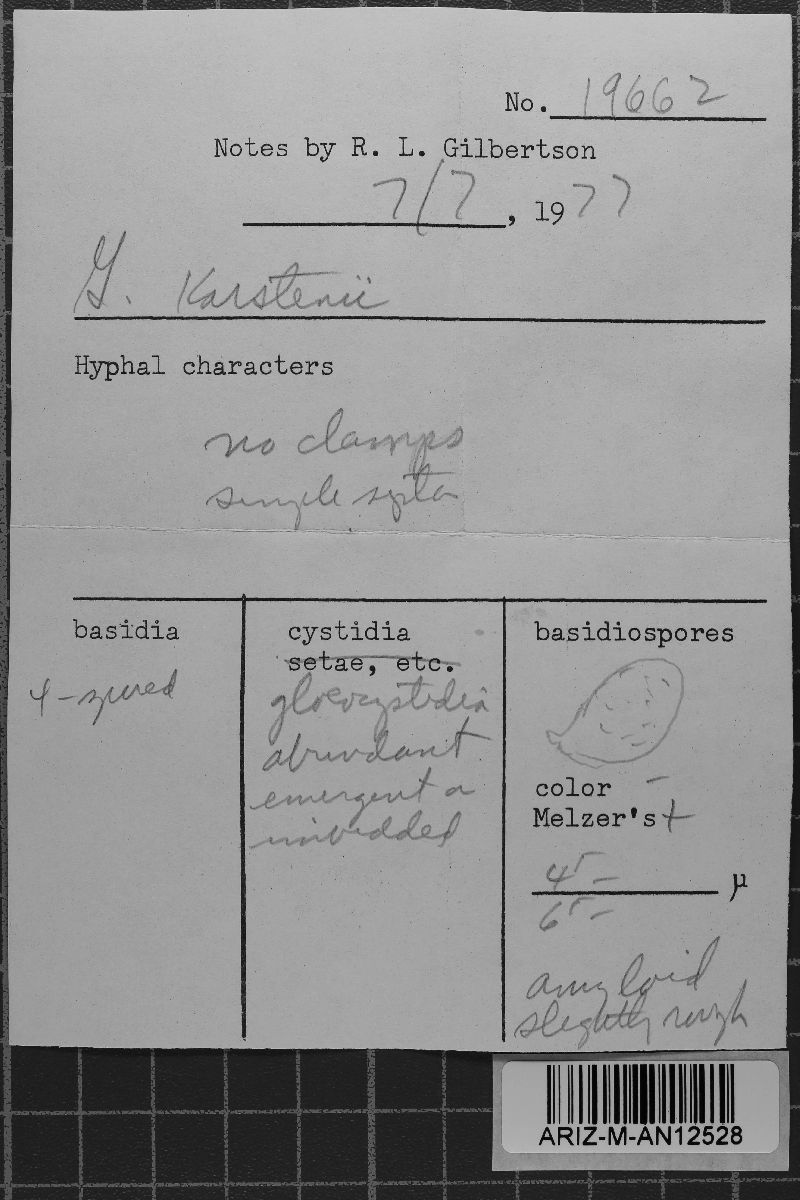 No. 19662
Notes by R. L. Gilbertson
7/7, 1977
G. Karstenii
Hyphal characters
no clamps
simple septa
basidia
4-spored
cystidia
setae, etc.
gloeocystidia
abundant
emergent or
imbedded
basidiospores
color –
Melzer's +
45 – µ
65 –
amyloid
slightly rough
ARIZ-M-AN12528